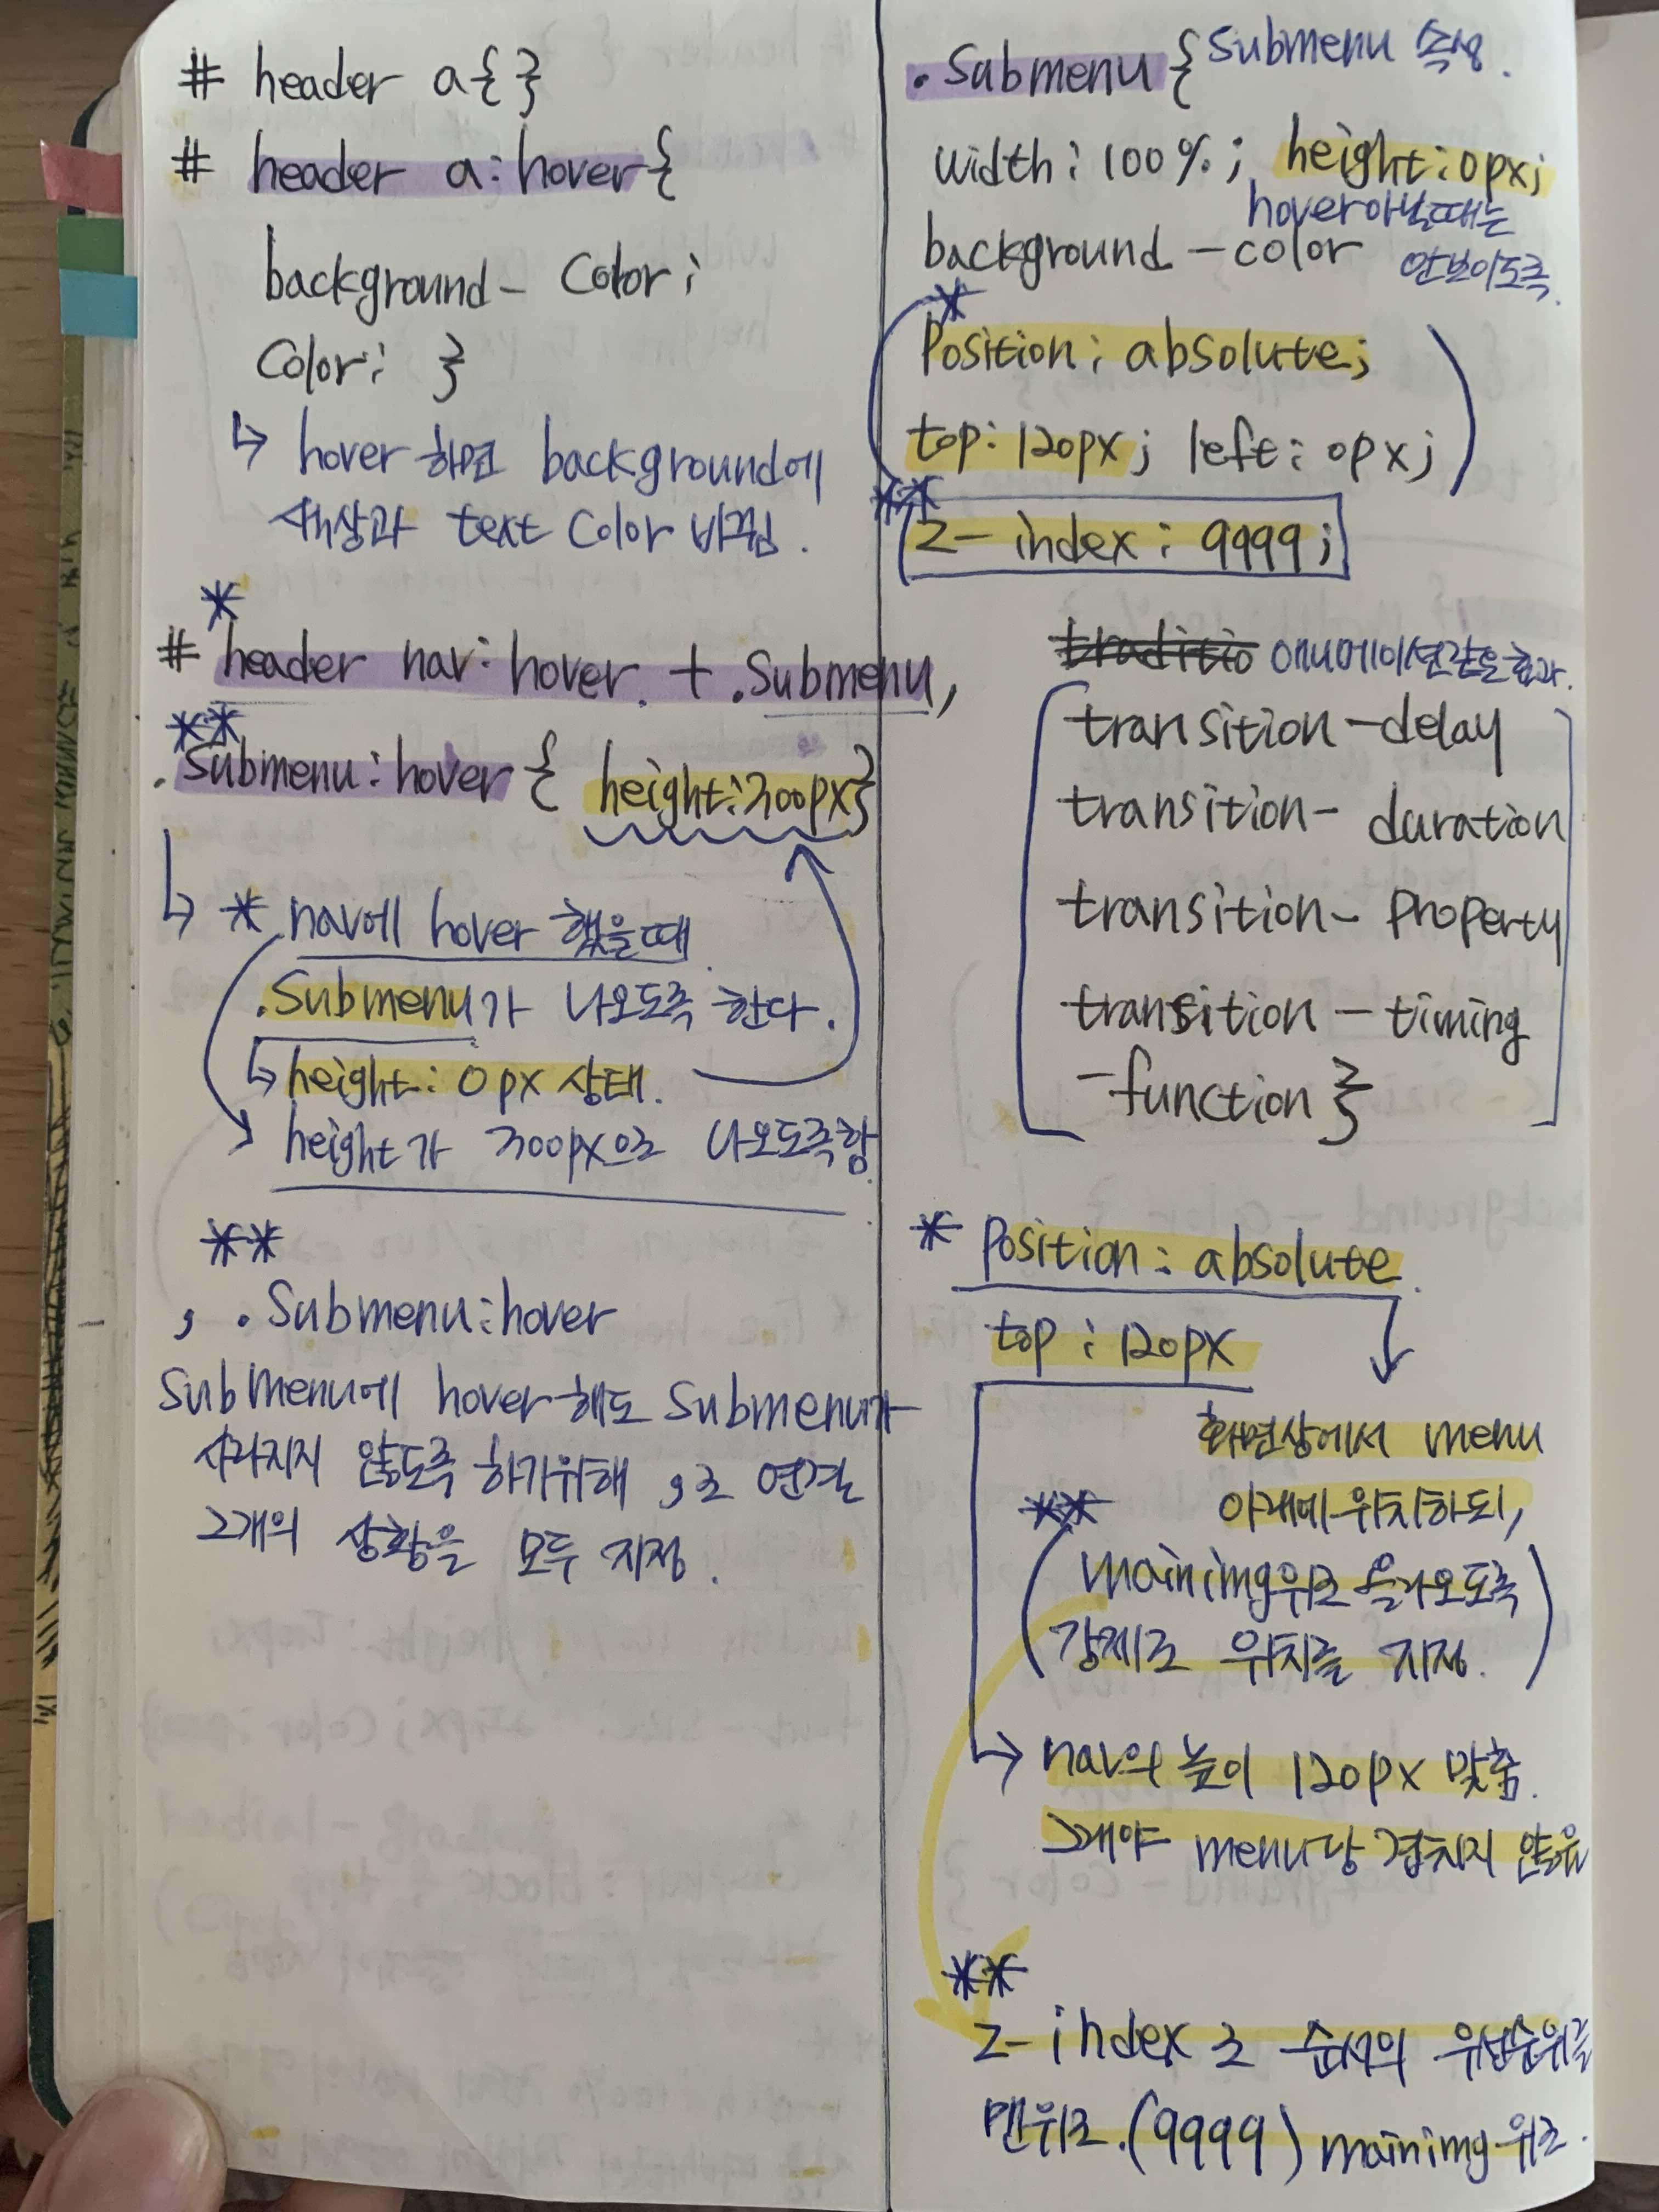 # header a{ }
# header a:hover{
background- color;
color; }
↳ hover 하면 background에
색상과 text color 바뀜.
*
# header nav:hover + .submenu,
**
.submenu:hover { height:300px}
↳ * nav에 hover 했을때
.submenu가 나오도록 한다.
↳ height: 0px 상태.
height가 300px으로 나오도록함.
**
, .submenu:hover
submenu에 hover해도 submenu가
사라지지 않도록 하기위해 ,로 연결
2개의 상황을 모두 지정.
.submenu{ submenu 속성.
width: 100%; height:0px;
hover아닐때는
background-color 안보이도록.
*
Position: absolute;
top: 120px; left: 0px;
**
z-index: 9999;
애니메이션같은 효과.
transition-delay
transition-duration
transition-property
transition-timing
-function }
* Position: absolute.
top: 120px
화면상에서 menu
** 아래에 위치하되,
(mainimg위로 올라오도록
강제로 위치를 지정.)
→ nav의 높이 120px 맞춤.
그래야 menu랑 겹치지 않음
**
z-index로 순서의 우선순위를
맨위로.(9999) mainimg 위로.